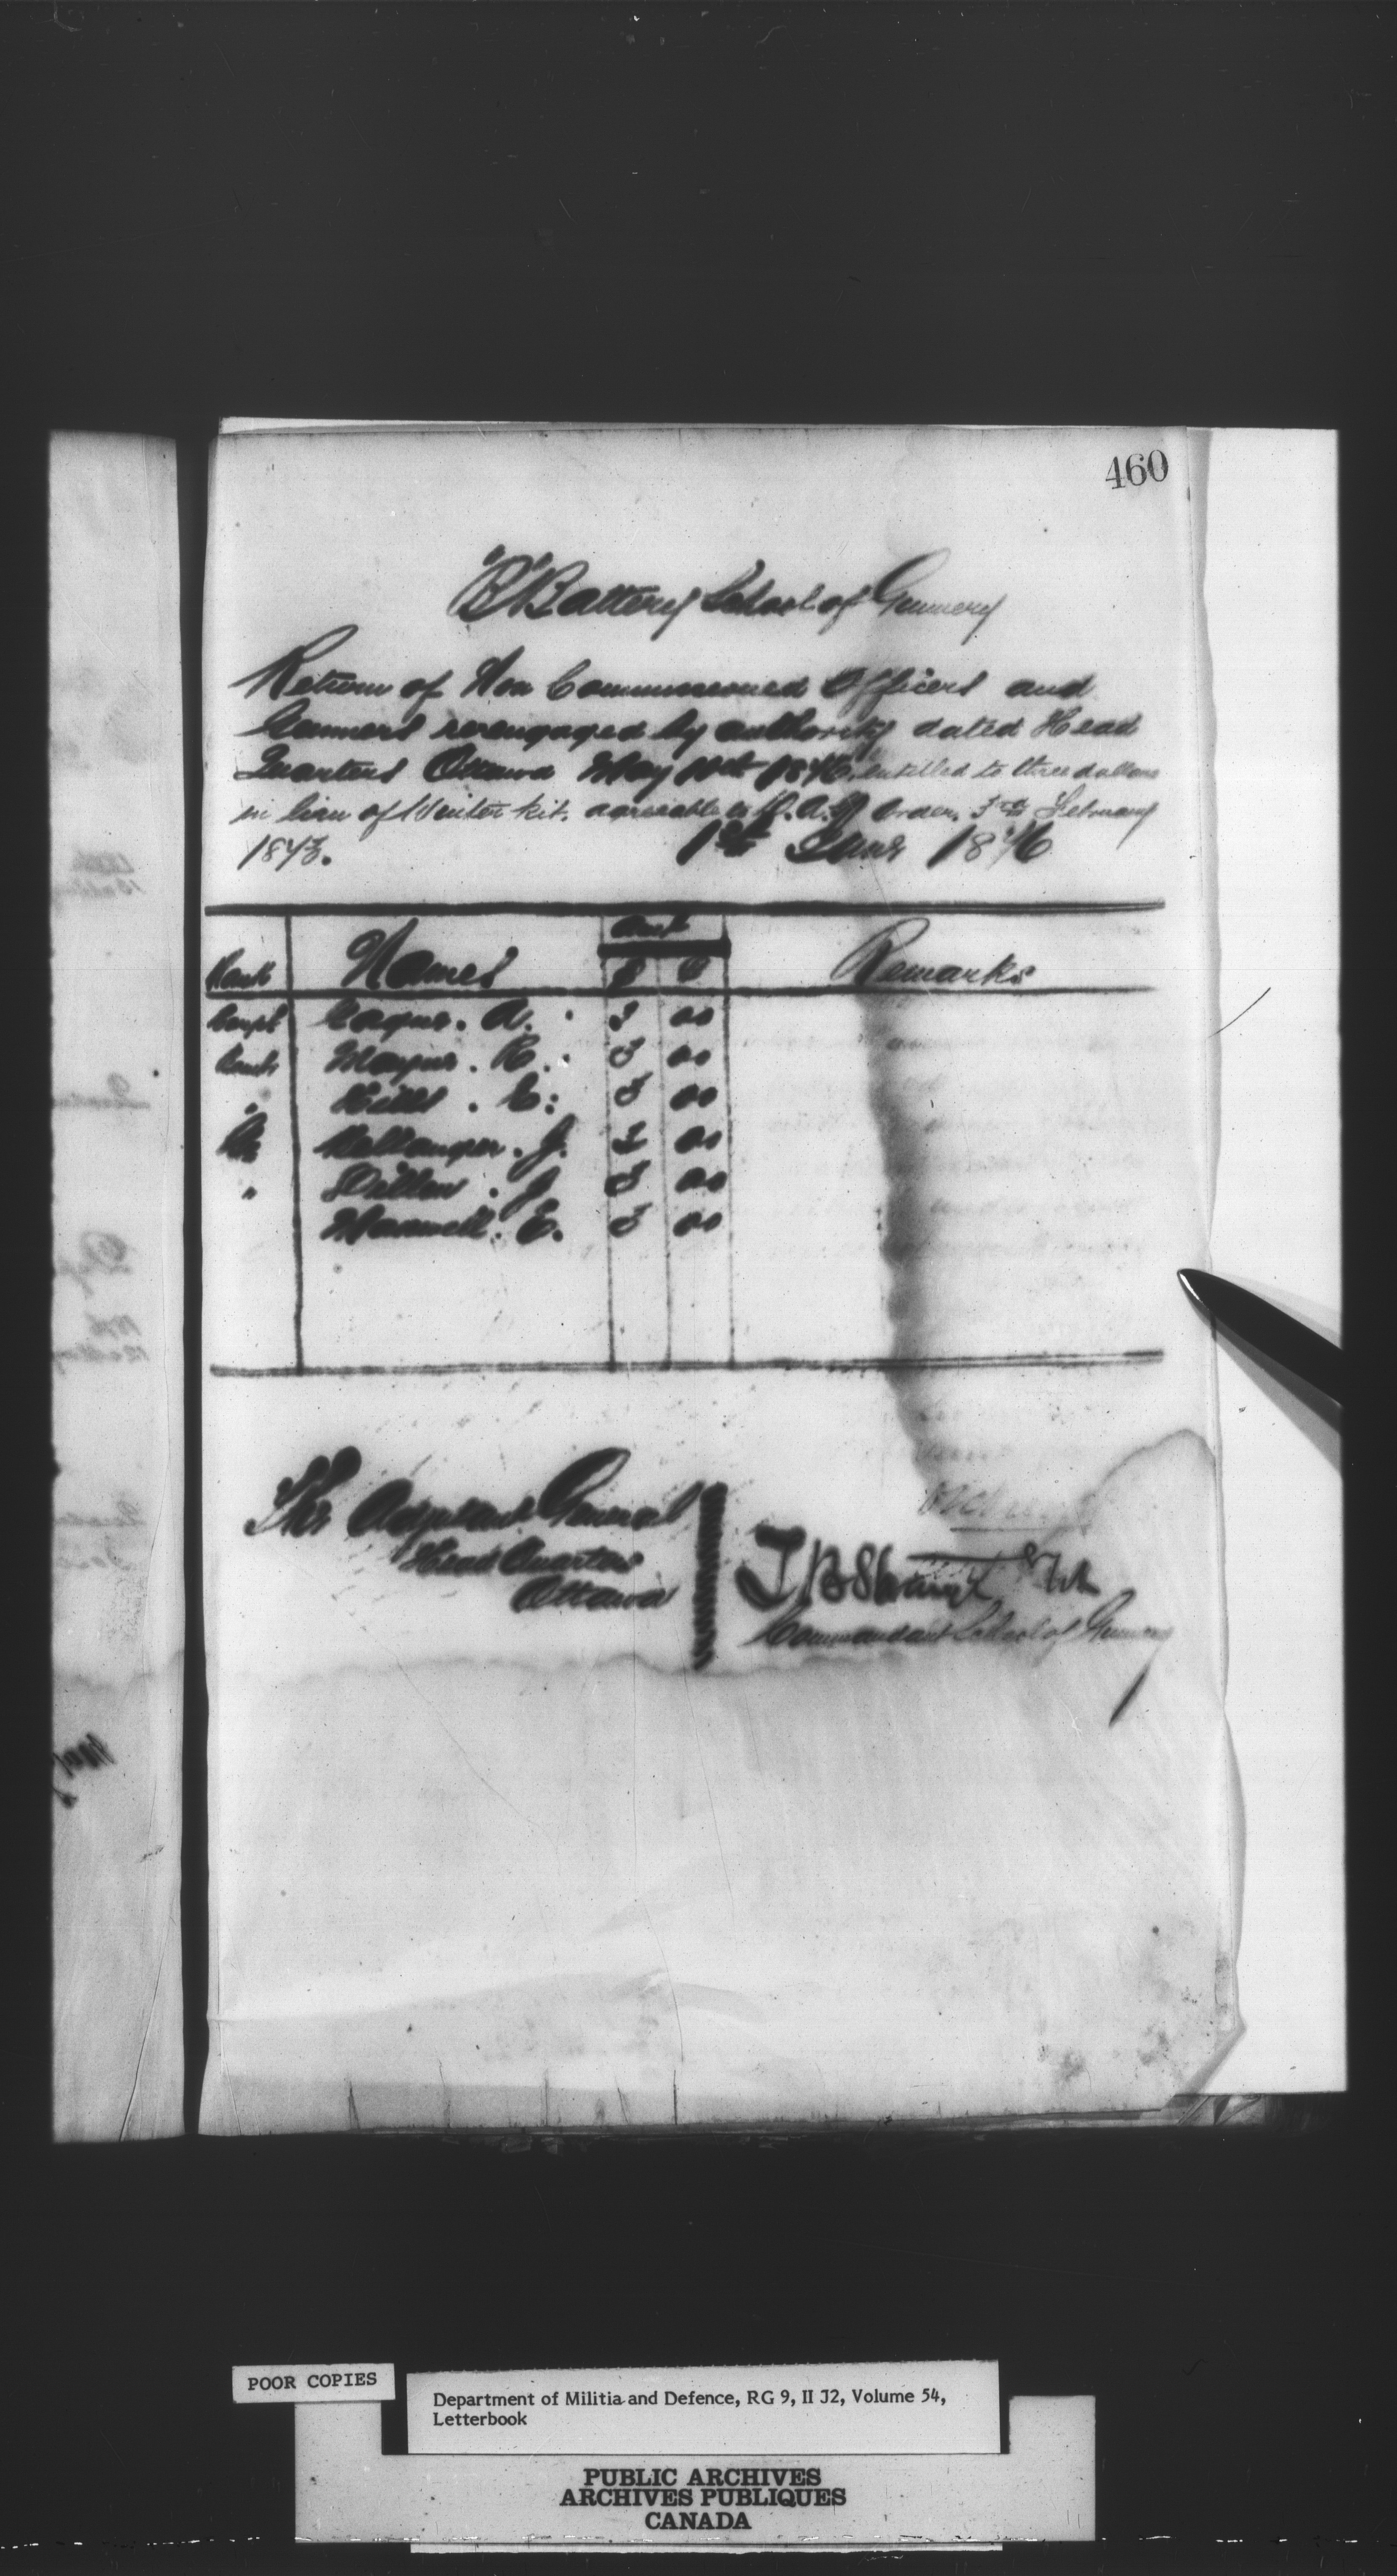 460
"B" Battery School of Gunnery
Return of Non Commissioned Officers and
Gunners reengaged by authority dated Head
Quarters Ottawa May 1876, entitled to three dollars
in lieu of Winter kit. agreeable to Order. February
1873.
1st June 1876
Rank
Names
$
C
Remarks
Corpl A. 3 00
R. 3 00
" C. 3 00
Gr J. 3 00
" Dillon. J 3 00
Maxwell. E. 3 00
The Adjutant General
Head Quarters
Ottawa
Commandant School of Gunnery
POOR COPIES
Department of Militia and Defence, RG 9, II J2, Volume 54,
Letterbook
PUBLIC ARCHIVES
ARCHIVES PUBLIQUES
CANADA